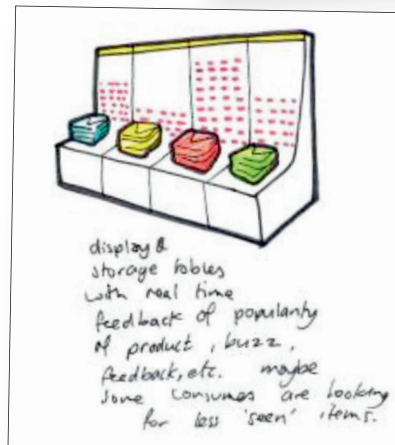 display &
storage tables
with real time
feedback of popularity
of product, buzz,
feedback, etc. maybe
some consumes are looking
for less 'seen' items.